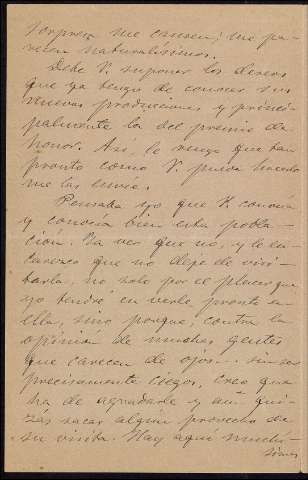 sorpresa me causen; me pa-
recen naturalísimos.
Debe V. suponer los deseos
que ya tengo de conocer sus
nuevas producciones y princi-
palmente la del premio de
honor. Así, le ruego que tan
pronto como V. pueda hacerlo
me las envíe.
Pensaba yo que V. conocía
y conocía bien esta pobla-
ción. Ya veo que no, y le en-
carezco que no deje de visi-
tarla, no solo por el placer que
yo tendré en verle pronto en
ella, sino porque, contra la
opinión de muchas gentes
que carecen de ojos sin ser
precisamente ciegos, creo que
ha de agradarle y aún qui-
zás sacar algún provecho de
su visita. Hay aquí muchí-
simos